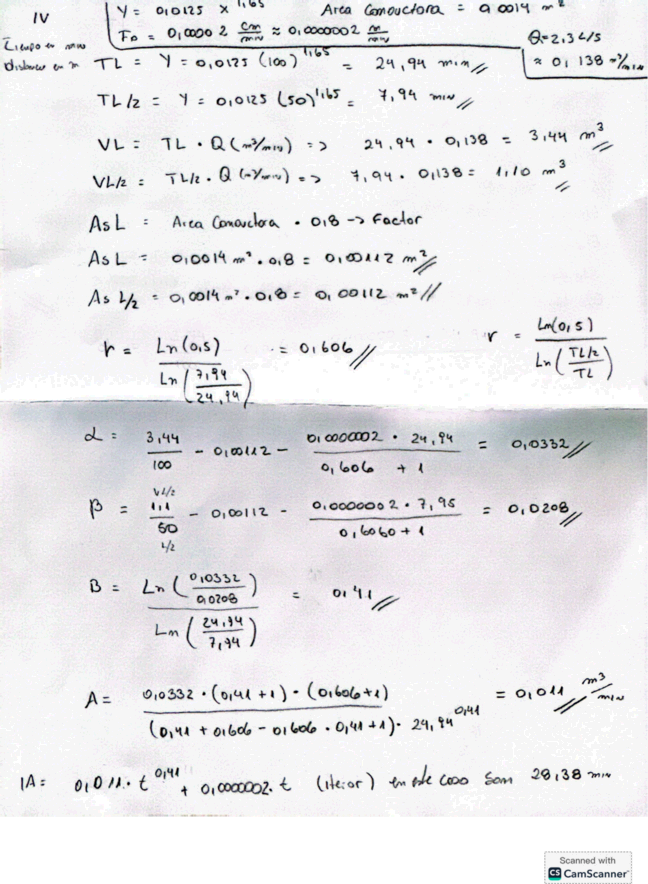 IV
Y = 0,0125 x^1,65 Area Conductora = 0,0014 m²
Fo = 0,00002 cm/min ≈ 0,0000002 m/min
Q = 2,3 L/s
≈ 0,138 m³/min
Tiempo en min
distancia en m
TL = Y = 0,0125 (100)^1,65 = 24,94 min
TL/2 = Y = 0,0125 (50)^1,65 = 7,94 min
VL = TL · Q (m³/min) => 24,94 · 0,138 = 3,44 m³
VL/2 = TL/2 · Q (m³/min) => 7,94 · 0,138 = 1,10 m³
AsL = Area Conductora · 0,8 -> Factor
AsL = 0,0014 m² · 0,8 = 0,00112 m²
As L/2 = 0,0014 m² · 0,8 = 0,00112 m²
r = Ln(0,5) / Ln(7,94/24,94) = 0,606
r = Ln(0,5) / Ln(TL/2 / TL)
α = 3,44/100 - 0,00112 - 0,0000002 · 24,94 / 0,606 + 1 = 0,0332
VL/2
β = 1,1/50 - 0,00112 - 0,0000002 · 7,95 / 0,6060 + 1 = 0,0208
L/2
B = Ln(0,0332/0,0208) / Ln(24,94/7,94) = 0,41
A = 0,0332 · (0,41 + 1) · (0,606 + 1) / (0,41 + 0,606 - 0,606 · 0,41 + 1) · 24,94^0,41 = 0,011 m³/min
IA = 0,011 · t^0,41 + 0,0000002 · t (iterar) en este caso son 28,38 min
Scanned with
CS CamScanner